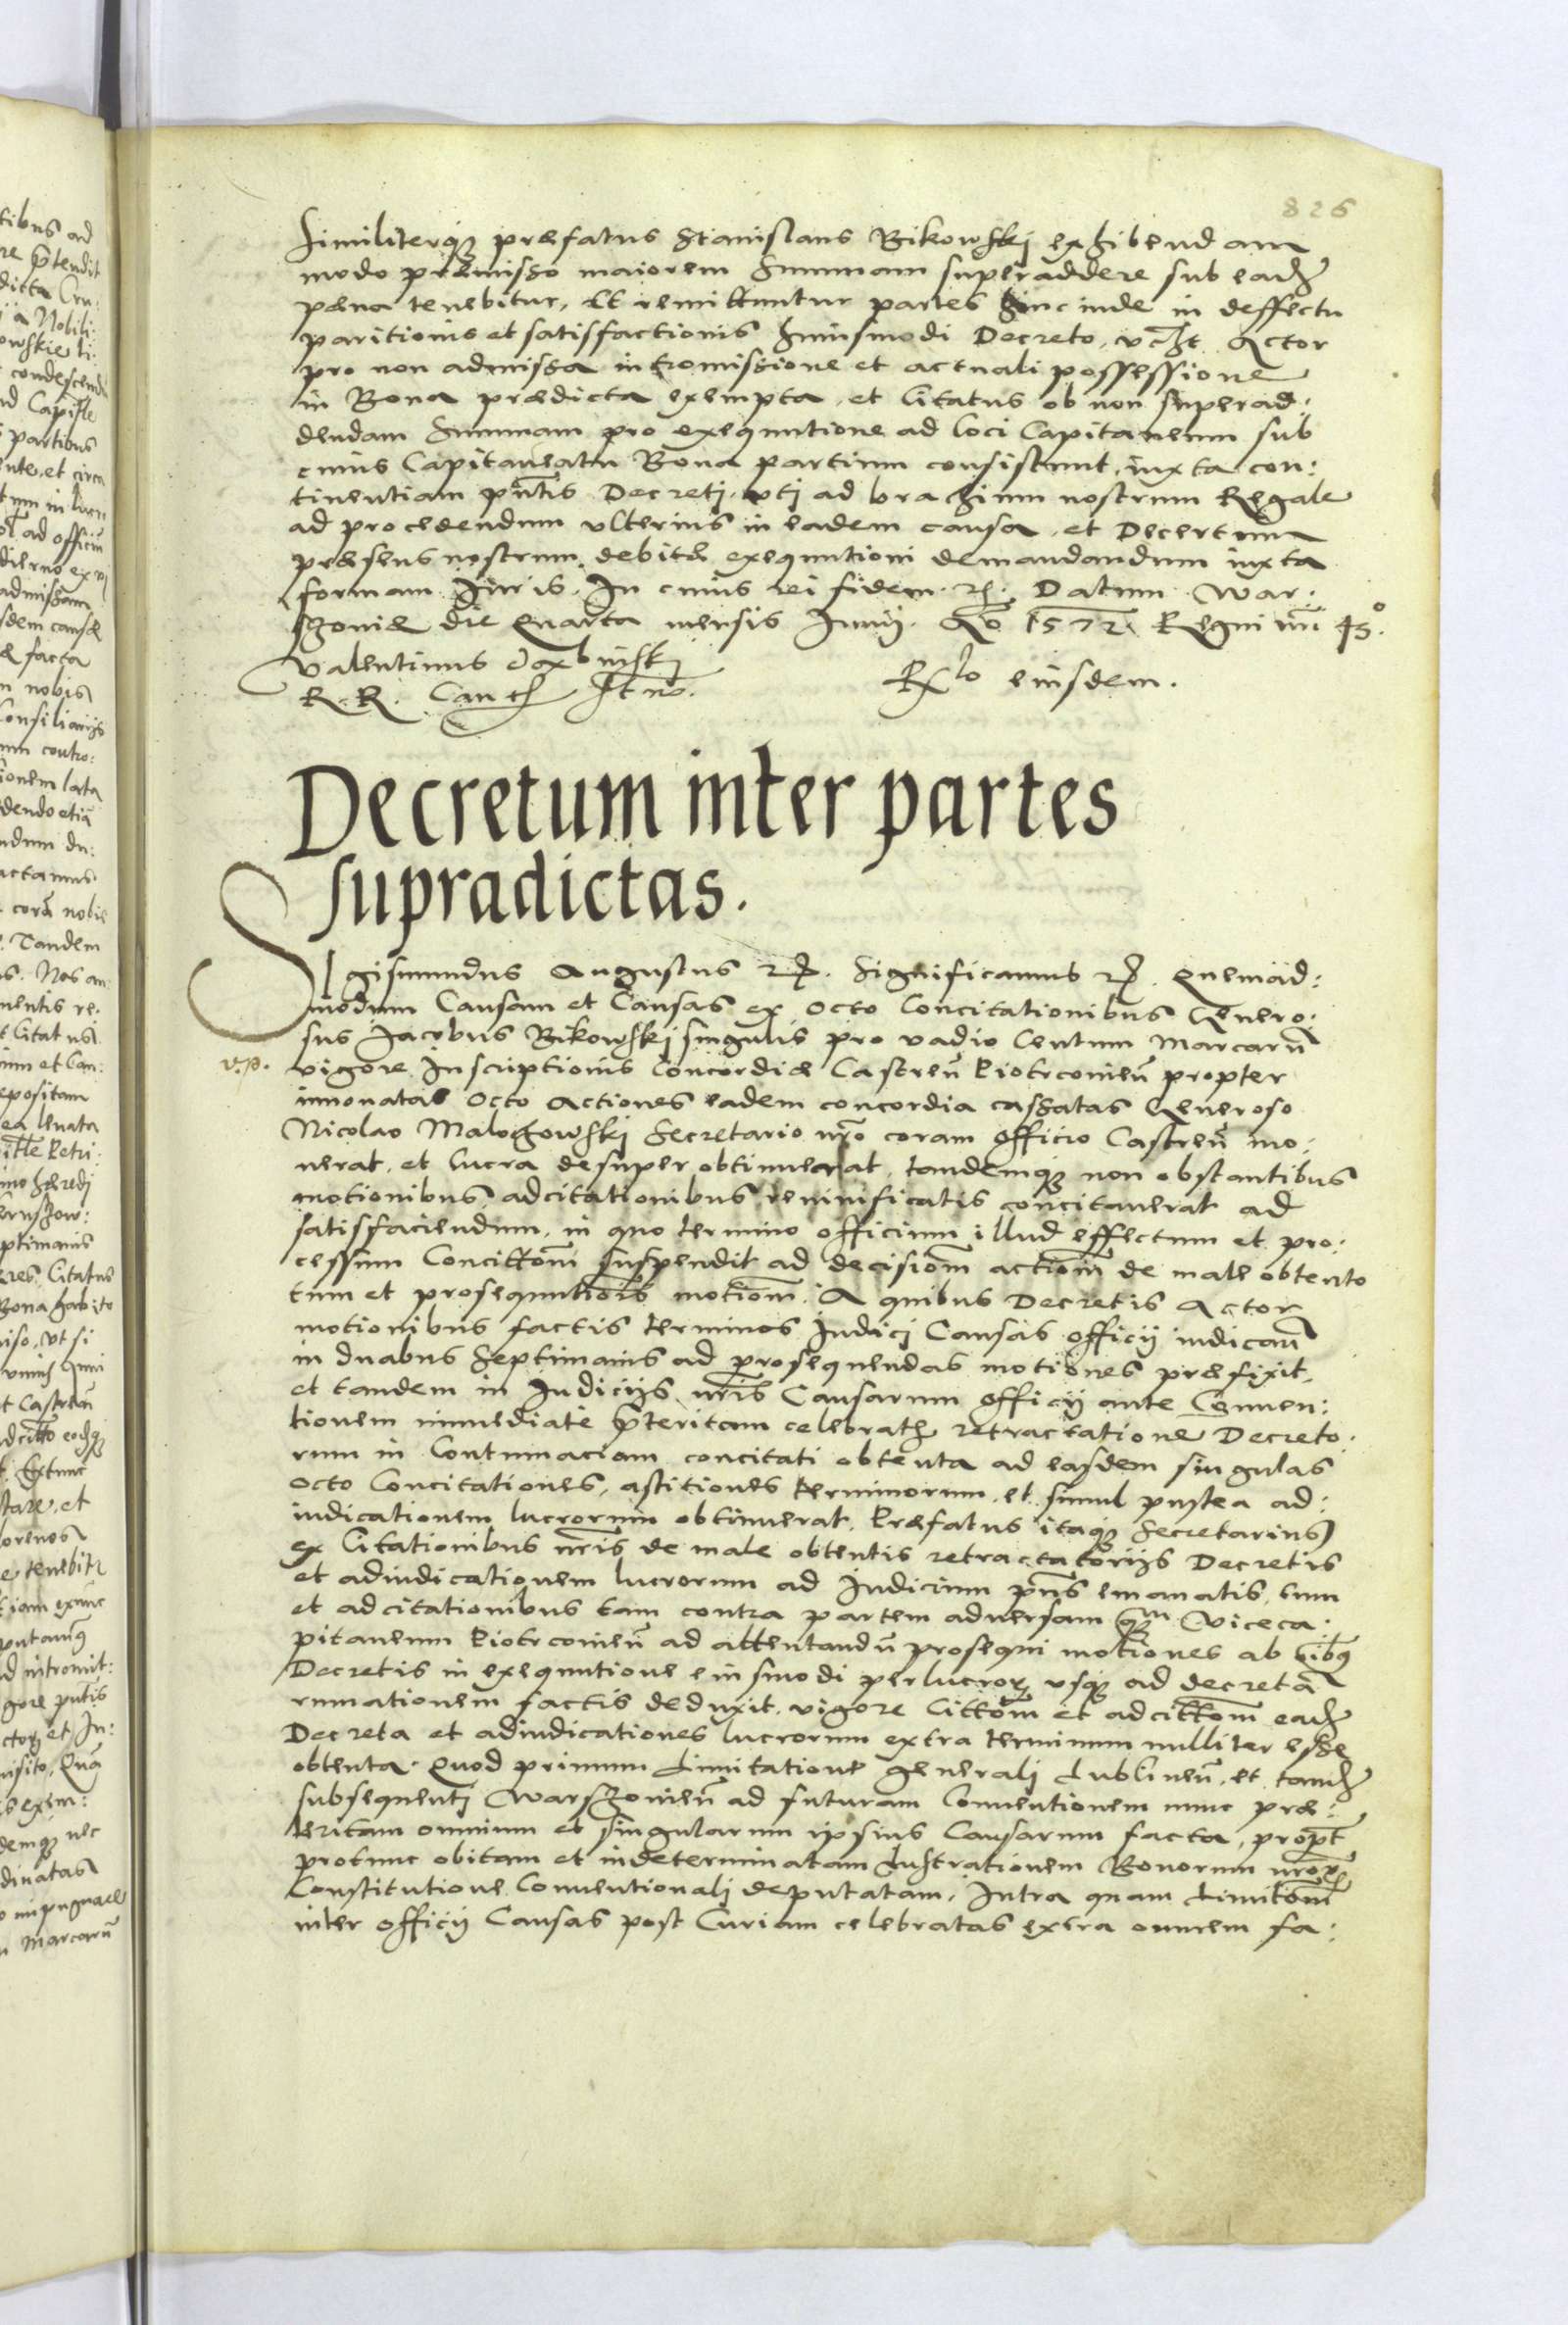 826
Similiterqꝫ præfatus Stanislaus Bikowskj exhibendam
modo præmisso maiorem Summam superaddere sub eadē
pæna tenebitur, Et remittuntur partes hinc inde in deffectu
paritionis et satisfactionis huiusmodi Decreto, Actor
pro non admissa intromissione et actuali possessione
in Bona prædicta exempta, et Citatus ob non superad:
dendam Summam pro exequutione ad loci Capitaneum sub
cuius Capitaneatu Bona partium consistunt, iuxta con:
tinentiam pñtis Decretj, vtj ad brachium nostrum Regale
ad procedendum vlterius in eadem causa, et Decretum
præsens nostrum debitæ exequutioni demandandum iuxta
formam Iuris. In cuius rei fidem. Datum War:
szouiæ die Quarta mensis Iunij. Ao 1572. Regni nrī 43o.
Valentinus Daxbinskj
R. R. Canc
Rlo eiusdem.
Decretum inter partes
supradictas.
Sigismundus Augustus Significamus Quemad:
modum Causam et Causas ex octo Concitationibus Genero:
sus Iacobus Bikowskj singulis pro vadio Centum Marcarū
v.p.
vigore Inscriptionis Concordiæ Castreñ Piotrconieñ propter
innouatas Octo Actiones eadem concordia cassatas Generoso
Nicolao Malogowskj Secretario nrō coram Officio Castreñ mo:
uerat, et lucra desuper obtinuerat, tandemqꝫ non obstantibus
motionibus adcitationibus reiniuficatis concitauerat ad
satisfaciendum, in quo termino officium illud effectum et pro:
cessum Concittōm suspendit ad decisiōm actiōm de male obtento
tum et prosequutiōis motiōm. A quibus Decretis Actor
motionibus factis terminos Iudicj Causas officij iudicañ
in duabus Septimanis ad prosequendas motiones præfixit,
et tandem in Iudicijs nrīs Causarum Officij ante Conuen:
tionem immediate p̄teritam celebratis retractatione Decreto:
rum in Contumaciam concitati obtenta ad easdem singulas
octo Concitationes, astitiones terminorum, et simul pustea ad:
iudicationem lucrorum obtinuerat. Præfatus itaqꝫ Secretarius
ex Citationibus nrīs de male obtentis retractatorijs Decretis
et adiudicationem lucrorum ad Iudicium pñs emanatis, tum
et adcitationibus tam contra partem aduersam q̄m Viceca:
pitaneum Piotrconieñ ad attentandū prosequi motiones ab
Decretis in exequutione eiusmodi perlucrorꝫ vsqꝫ ad decretā
rumationem factis deduxit, vigore Cittōm et adcittōm eadē
Decreta et adiudicationes lucrorum extra terminum nulliter esse
obtenta. Quod primum Limitatione generalj Lublineñ, et tandē
subsequentj Warszouieñ ad futuram Conuentionem nunc præ:
teritam omnium et singularum ipsius Causarum facta, propt̄
protunc obitam et indeterminatam Lustrationem Bonorum nrōrꝫ
Constitutione Conuentionalj deputatam, Intra quam Limitōm
inter Officij Causas post Curiam celebratas extra omnem fa: